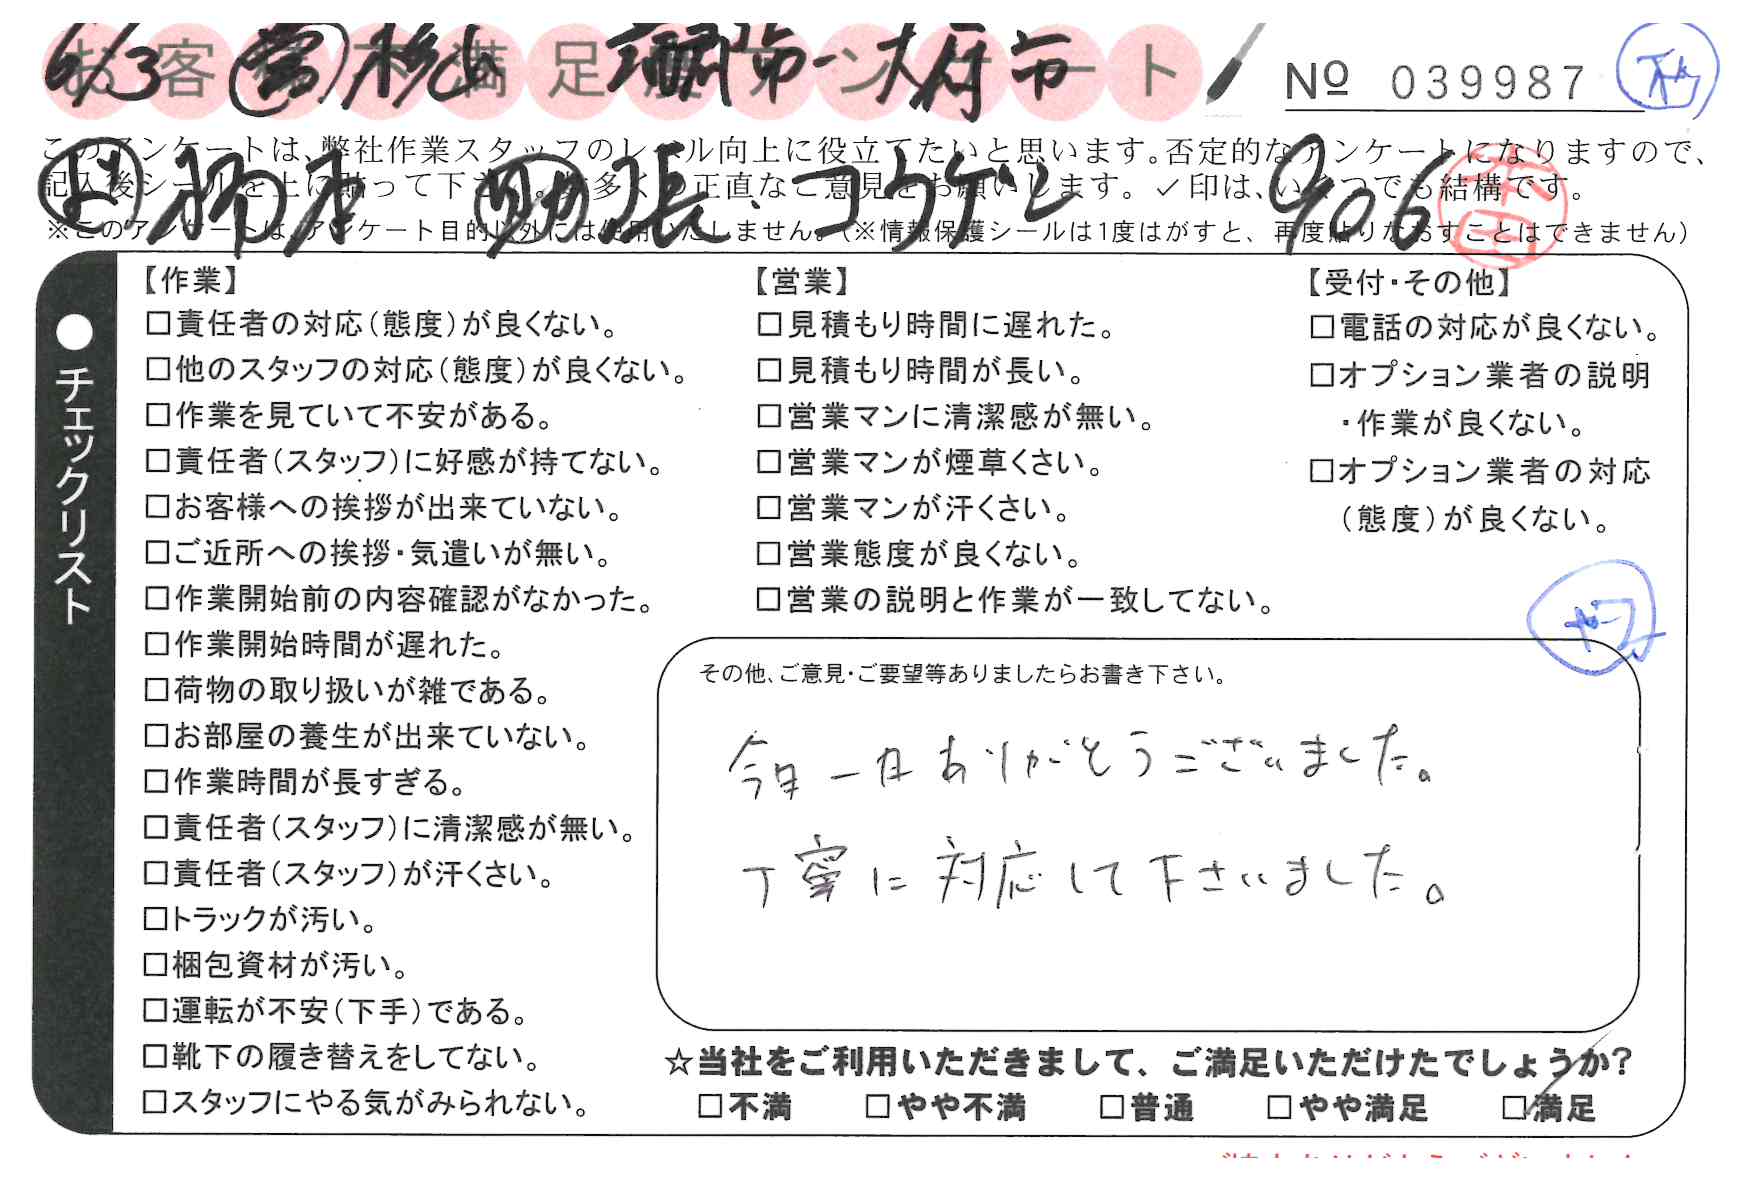 お客様不満足度アンケート
6/3 営 杉山 大府市
No 039987
このアンケートは、弊社作業スタッフのレベル向上に役立てたいと思います。否定的なアンケートになりますので、
記入後シールを上に貼って下さい。数多くの正直なご意見をお願いします。✓印は、いくつでも結構です。
助 張、コウケン 906
本田
※このアンケートは、アンケート目的以外には使用いたしません。(※情報保護シールは1度はがすと、再度貼りなおすことはできません)
●チェックリスト
【作業】
□責任者の対応(態度)が良くない。
□他のスタッフの対応(態度)が良くない。
□作業を見ていて不安がある。
□責任者(スタッフ)に好感が持てない。
□お客様への挨拶が出来ていない。
□ご近所への挨拶・気遣いが無い。
□作業開始前の内容確認がなかった。
□作業開始時間が遅れた。
□荷物の取り扱いが雑である。
□お部屋の養生が出来ていない。
□作業時間が長すぎる。
□責任者(スタッフ)に清潔感が無い。
□責任者(スタッフ)が汗くさい。
□トラックが汚い。
□梱包資材が汚い。
□運転が不安(下手)である。
□靴下の履き替えをしてない。
□スタッフにやる気がみられない。
【営業】
□見積もり時間に遅れた。
□見積もり時間が長い。
□営業マンに清潔感が無い。
□営業マンが煙草くさい。
□営業マンが汗くさい。
□営業態度が良くない。
□営業の説明と作業が一致してない。
【受付・その他】
□電話の対応が良くない。
□オプション業者の説明
・作業が良くない。
□オプション業者の対応
(態度)が良くない。
その他、ご意見・ご要望等ありましたらお書き下さい。
今日一日ありがとうございました。
丁寧に対応して下さいました。
☆当社をご利用いただきまして、ご満足いただけたでしょうか?
□不満 □やや不満 □普通 □やや満足 □満足